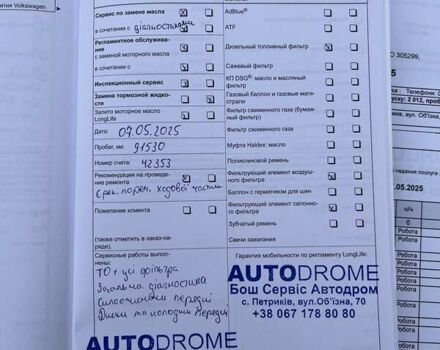 ятия Volkswagen
Сервис по замене масла
в сочетании с діагностикою
Регламентное обслужива-
ние
с заменой моторного масла
в сочетании с
Инспекционный сервис
Замена тормозной жидко-
сти
Залито моторное масло
LongLife
Дата:
07.05.2025
Пробег, км:
91530
Номер счета:
42353
Рекомендация на проведе-
ние ремонта
ходової частини
Пожелание клиента
(также отметить в заказ-на-
ряде).
Сервисные работы выпол-
нены:
ТО + усі фільтра
Загальна діагностика
передні
Диски та колодки передні
AdBlue®
ATF
Дизельный топливный фильтр
Сажевый фильтр
КП DSG®: масло и масляный
фильтр
Газовый баллон и газовые маги-
страли
Фильтр сжиженного газа (бумаж-
ный фильтр)
Фильтр сжиженного газа
Муфта Haldex: масло
Поликлиновой ремень
Фильтрующий элемент воздуш-
ного фильтра
Баллон с герметиком для шин
Фильтрующий элемент салонно-
го фильтра
Зубчатый ремень
Свечи зажигания
Гарантия мобильности по регламенту LongLife:
AUTODROME
Бош Сервіс Автодром
с. Петриків, вул.Об'їзна, 70
+38 067 178 80 80
AUTODROME
ЮО 305299,
5
Телефони:
2 012, про
вул. Об'їзна
надання послуги
.05.2025
н/ч
6
Робота
Робота
Робота
Робота
Робота
Робота
Робота